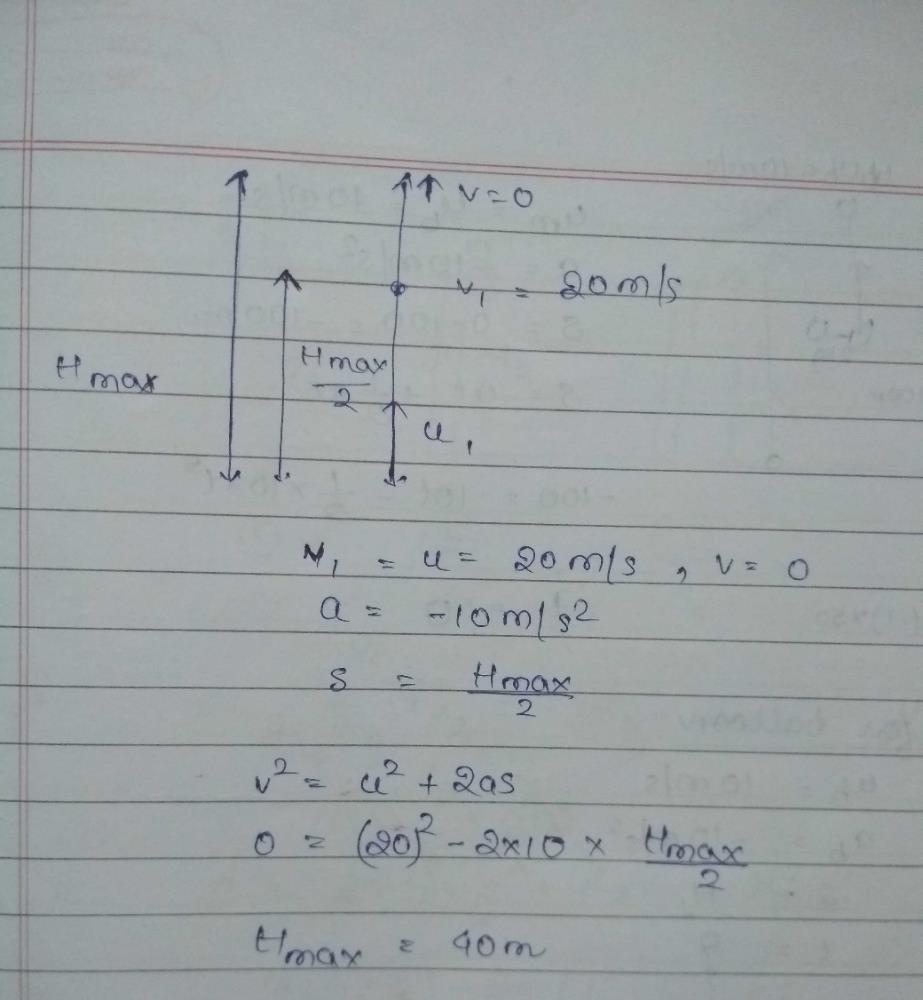 v=0
v₁ = 20m/s
Hmax
Hmax/2
u₁
v₁ = u = 20m/s , v = 0
a = -10m/s²
s = Hmax/2
v² = u² + 2as
0 = (20)² - 2×10 × Hmax/2
Hmax = 40m